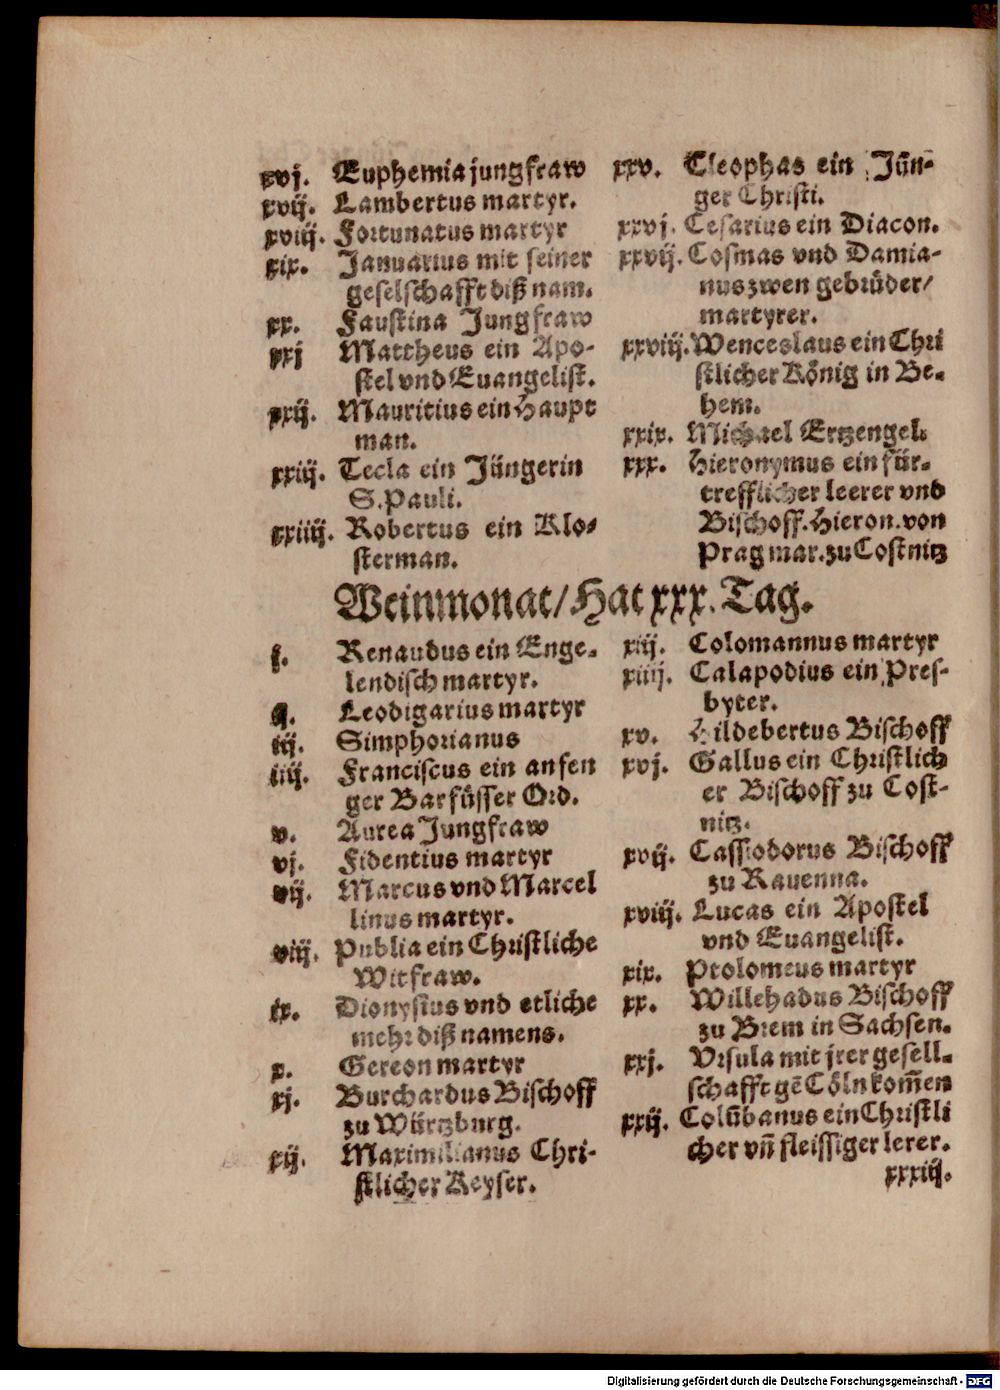 xvj. Euphemia jungfraw
xvij. Lambertus martyr.
xviij. Fortunatus martyr
xix. Januarius mit seiner
geselschafft diß nam.
xx. Faustina Jungfraw
xxj Mattheus ein Apo-
stel vnd Euangelist.
xxij. Mauritius ein Haupt
man.
xxiij. Tecla ein Jüngerin
S. Pauli.
xxiiij. Robertus ein Klo-
sterman.
xxv. Cleophas ein Jün-
ger Christi.
xxvj. Cesarius ein Diacon.
xxvij. Cosmas vnd Damia-
nus zwen gebrüder/
martyrer.
xxviij. Wenceslaus ein Chri
stlicher König in Be-
hem.
xxix. Michael Ertzengel.
xxx. Hieronymus ein für-
trefflicher leerer vnd
Bischoff. Hieron. von
Prag mar. zu Costnitz
Weinmonat/ Hat xxx. Tag.
j. Renaudus ein Enge-
lendisch martyr.
ij. Leodigarius martyr
iij. Simphorianus
iiij. Franciscus ein anfen
ger Barfüsser Ord.
v. Aurea Jungfraw
vj. Fidentius martyr
vij. Marcus vnd Marcel
linus martyr.
viij. Publia ein Christliche
Witfraw.
ix. Dionysius vnd etliche
mehr diß namens.
x. Gereon martyr
xj. Burchardus Bischoff
zu Würtzburg.
xij. Maximilianus Chri-
stlicher Keyser.
xiij. Colomannus martyr
xiiij. Calapodius ein Pres-
byter.
xv. Hildebertus Bischoff
xvj. Gallus ein Christlich
er Bischoff zu Cost-
nitz.
xvij. Cassiodorus Bischoff
zu Rauenna.
xviij. Lucas ein Apostel
vnd Euangelist.
xix. Ptolomeus martyr
xx. Willehadus Bischoff
zu Brem in Sachsen.
xxj. Vrsula mit jrer gesell-
schafft gē Cöln kom̄en
xxij. Colūbanus ein Christli
cher vn̄ fleissiger lerer.
xxxiij.
Digitalisierung gefördert durch die Deutsche Forschungsgemeinschaft - DFG